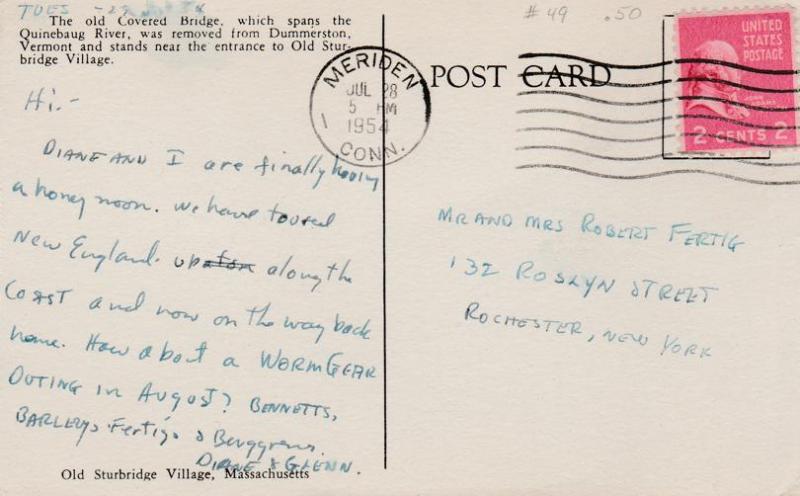 TUES -27
The old Covered Bridge, which spans the
Quinebaug River, was removed from Dummerston,
Vermont and stands near the entrance to Old Stur-
bridge Village.
Hi.-
DIANE AND I are finally having
a honey noon. we have toured
New England. up along the
COAST and now on the way back
home. How about a WORM GEAR
OUTING in AUGUST? BENNETTS,
BARLEYS, Fertigs & Berggrens.
DIANE & GLENN.
Old Sturbridge Village, Massachusetts
#49 .50
POST CARD
MERIDEN
JUL 28
5 PM
1954
CONN.
1
UNITED
STATES
POSTAGE
JOHN ADAMS
2 CENTS 2
MR AND MRS ROBERT FERTIG
132 ROSLYN STREET
ROCHESTER, NEW YORK